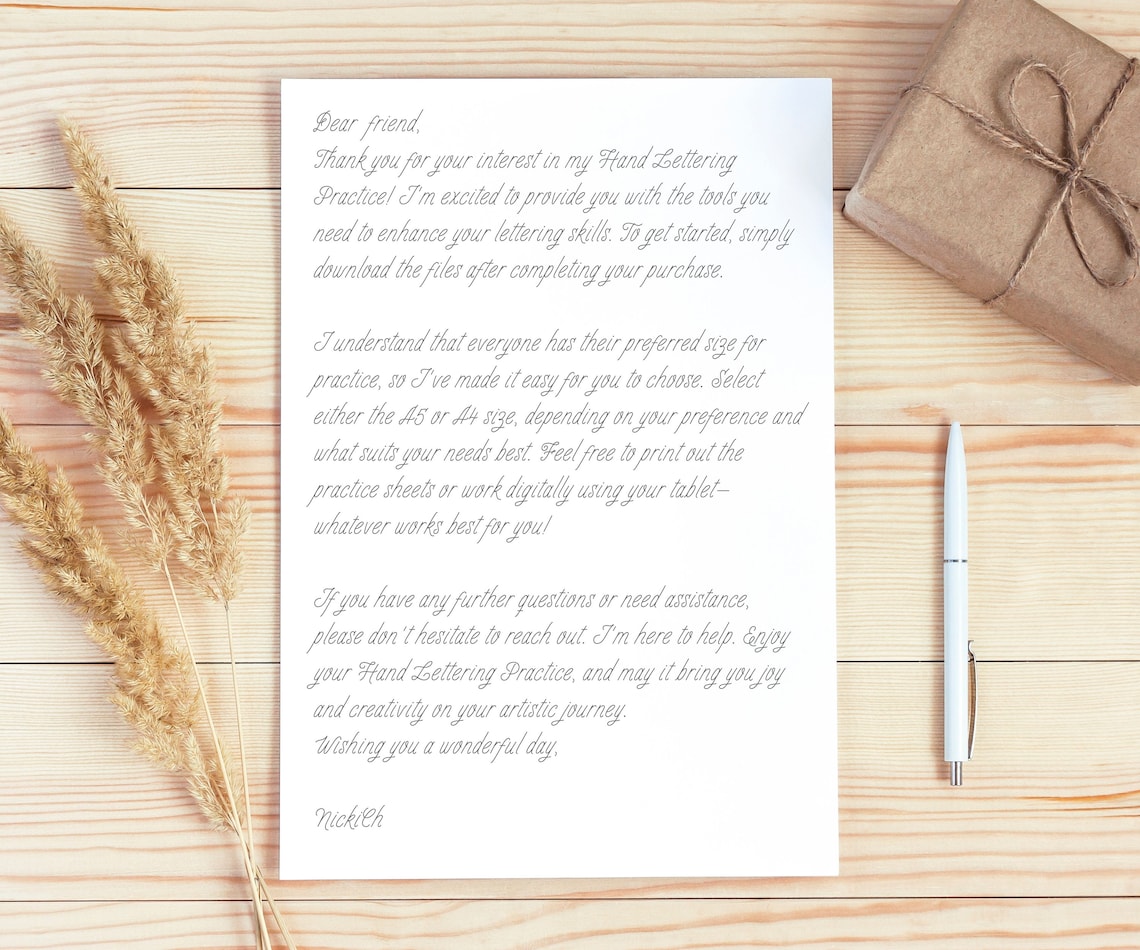 Dear friend,
Thank you for your interest in my Hand Lettering
Practice! I'm excited to provide you with the tools you
need to enhance your lettering skills. To get started, simply
download the files after completing your purchase.
I understand that everyone has their preferred size for
practice, so I've made it easy for you to choose. Select
either the A5 or A4 size, depending on your preference and
what suits your needs best. Feel free to print out the
practice sheets or work digitally using your tablet—
whatever works best for you!
If you have any further questions or need assistance,
please don't hesitate to reach out. I'm here to help. Enjoy
your Hand Lettering Practice, and may it bring you joy
and creativity on your artistic journey.
Wishing you a wonderful day,
NickiCh